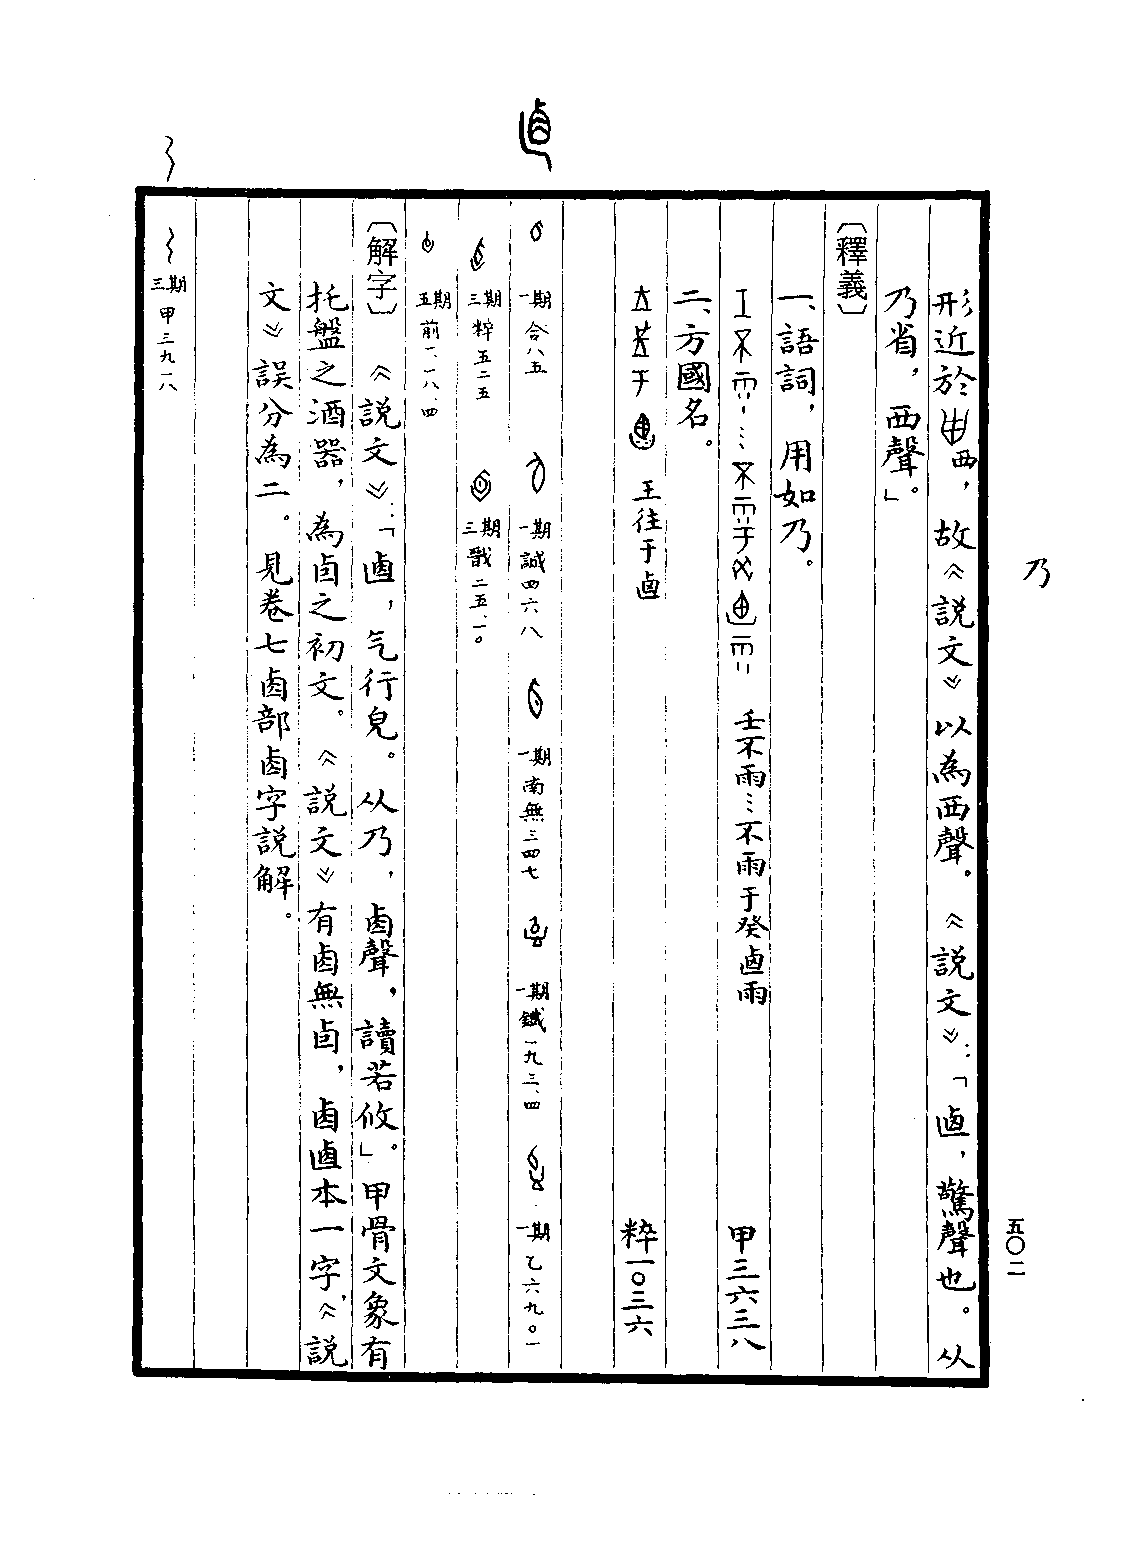 乃
五〇二
形近於西，故《説文》以為西聲。《説文》：「𠧟，驚聲也。从
乃省，西聲」。
〔釋義〕
一、語詞，用如乃。
壬不雨…不雨于癸𠧟雨 甲三六三八
二、方國名。
王往于𠧟 粹一〇三六
一期 合八五 一期 誠四六八 一期 南無三四七 一期 鐵一九三、四 一期 乙六九〇一
三期 粹五二五 三期 戩二五、一〇
五期 前一、一八、四
〔解字〕《説文》：「𠧴，气行皃。从乃，卥聲，讀若攸」。甲骨文象有
托盤之酒器，為卣之初文。《説文》有卥無卣，卥𠧴本一字，《説
文》誤分為二。見卷七卥部卥字説解。
三期 甲三九一八